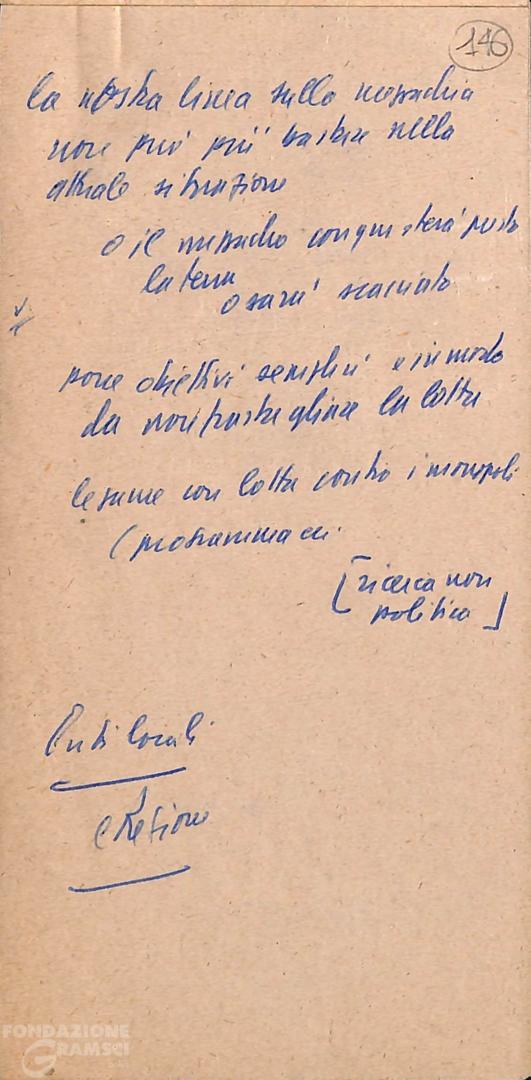 146
la nostra linea sulla mezzadria
non può più bastare nella
attuale situazione
o il mezzadro conquisterà presto
la terra
o sarà scacciato
porre obiettivi semplici e in modo
da non frastagliare la lotta
legame con lotta contro i monopoli
(programmaz.
[ricerca non
politica]
Enti locali
e Regione
FONDAZIONE
GRAMSCI